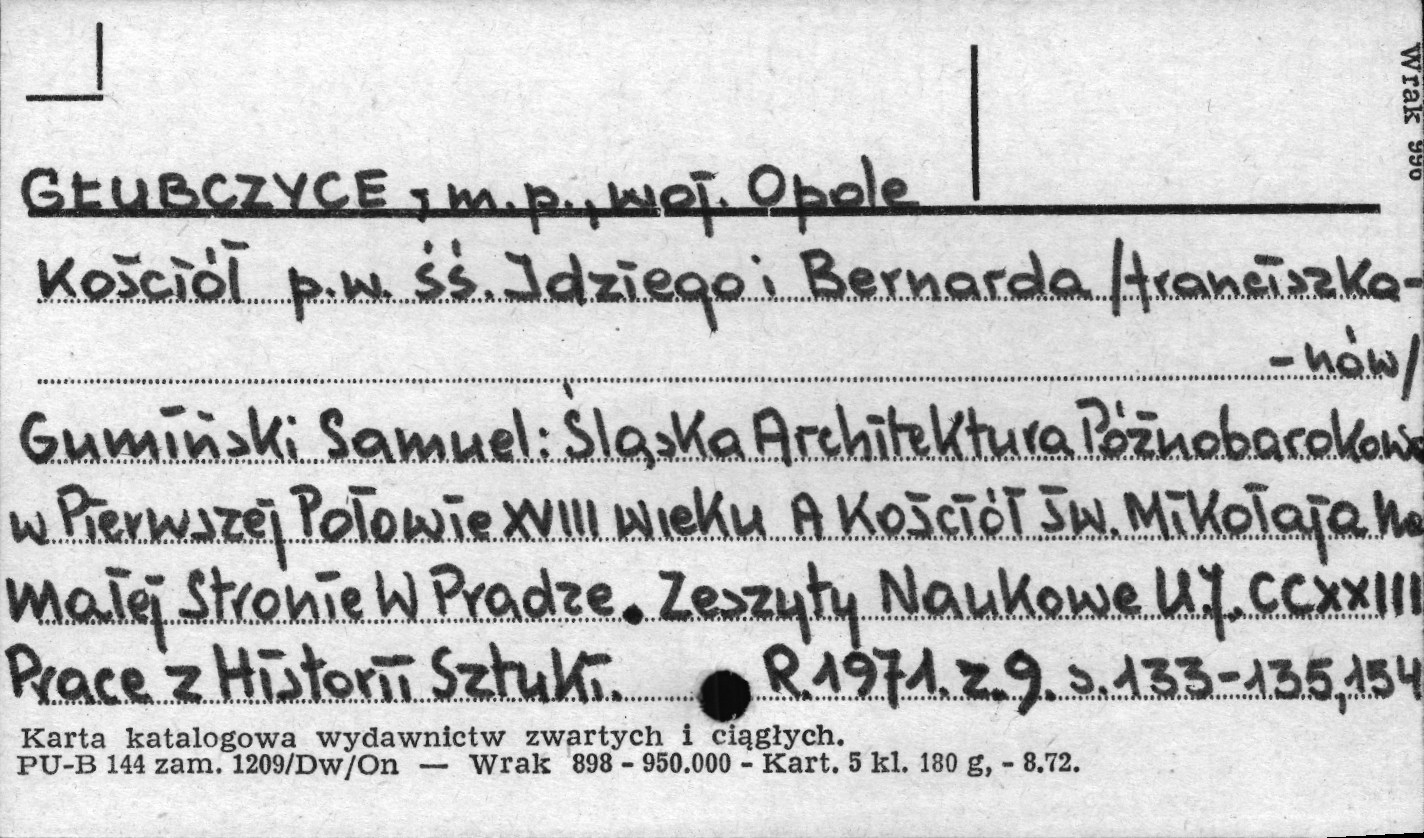 GŁUBCZYCE, m.p., woj. Opole
Kościół p.w. śś. Idziego i Bernarda /franciszka-
-nów/
Gumiński Samuel: Śląska Architektura Późnobarokowa
w Pierwszej Połowie XVIII wieku A Kościół Św. Mikołaja na
Małej Stronie W Pradze. Zeszyty Naukowe U.J. CCXXIII
Prace z Historii Sztuki. R.1971. z.9. s.133-135,154
Karta katalogowa wydawnictw zwartych i ciągłych.
PU-B 144 zam. 1209/Dw/On — Wrak 898 - 950.000 - Kart. 5 kl. 180 g, - 8.72.
Wrak 990